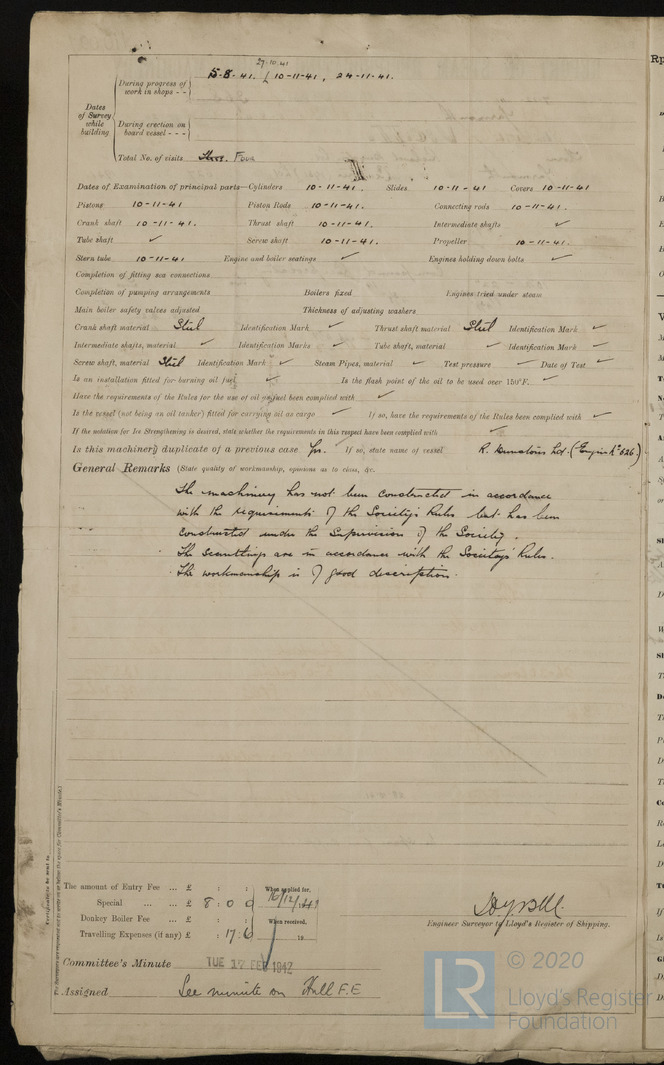 27.10.41
During progress of work in shops - - 5-8-41. 10-11-41, 24-11-41.
Dates of Survey while building
During erection on board vessel - - -
Total No. of visits Four
Dates of Examination of principal parts—Cylinders 10-11-41. Slides 10-11-41 Covers 10-11-41
Pistons 10-11-41 Piston Rods 10-11-41. Connecting rods 10-11-41.
Crank shaft 10-11-41. Thrust shaft 10-11-41. Intermediate shafts ✓
Tube shaft ✓ Screw shaft 10-11-41. Propeller 10-11-41.
Stern tube 10-11-41 Engine and boiler seatings ✓ Engines holding down bolts ✓
Completion of fitting sea connections
Completion of pumping arrangements Boilers fixed Engines tried under steam
Main boiler safety valves adjusted Thickness of adjusting washers
Crank shaft material Steel Identification Mark ✓ Thrust shaft material Steel Identification Mark ✓
Intermediate shafts, material ✓ Identification Marks ✓ Tube shaft, material ✓ Identification Mark ✓
Screw shaft, material Steel Identification Mark ✓ Steam Pipes, material ✓ Test pressure ✓ Date of Test ✓
Is an installation fitted for burning oil fuel ✓ Is the flash point of the oil to be used over 150°F. ✓
Have the requirements of the Rules for the use of oil as fuel been complied with ✓
Is the vessel (not being an oil tanker) fitted for carrying oil as cargo ✓ If so, have the requirements of the Rules been complied with ✓
If the notation for Ice Strengthening is desired, state whether the requirements in this respect have been complied with ✓
Is this machinery duplicate of a previous case Yes. If so, state name of vessel R. Dunstons Ltd. (Engine No 526.)
General Remarks (State quality of workmanship, opinions as to class, &c.
The machinery has not been constructed in accordance
with the requirements of the Society's Rules but has been
constructed under the Supervision of the Society.
The scantlings are in accordance with the Society's Rules.
The workmanship is of good description.
The amount of Entry Fee ... £ : :
Special ... ... £ 8 : 0 0
Donkey Boiler Fee ... £ : :
Travelling Expenses (if any) £ : 17 : 6
When applied for, 16/12/1941
When received, 19
Engineer Surveyor to Lloyd's Register of Shipping.
Committee's Minute TUE 17 FEB 1942
Assigned See minute on Hull F.E
Certificate to be sent to
Rp
© 2020
LR
Lloyd's Register
Foundation